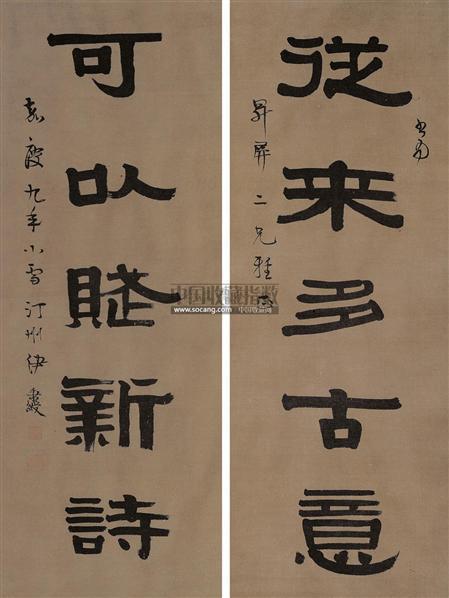 書為
從来多古意
昇屏二兄雅正
可以賦新詩
嘉慶九年小雪汀州伊秉綬
中国收藏指数
www.socang.com 中国收藏网